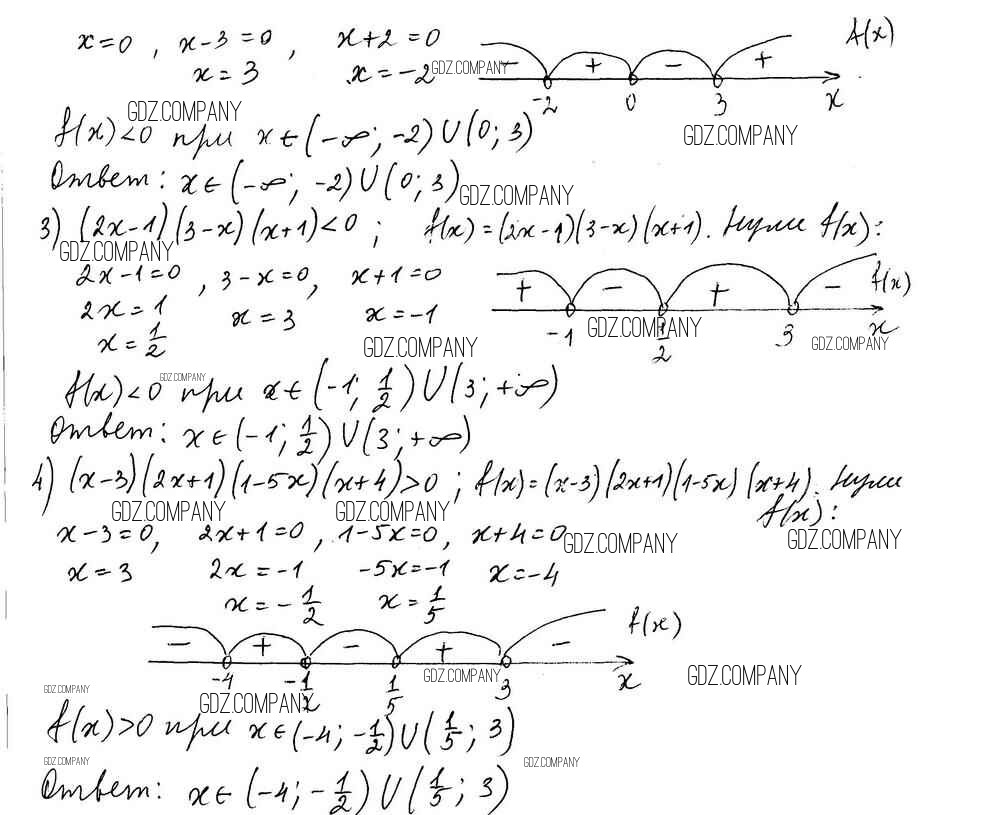 x=0 , x-3=0 , x+2=0 f(x)
x=3 x=-2 GDZ.COMPANY - + - +
-2 0 3 x
GDZ.COMPANY
f(x)<0 при x∈(-∞; -2)∪(0; 3) GDZ.COMPANY
Ответ: x∈(-∞; -2)∪(0; 3) GDZ.COMPANY
3) (2x-1)(3-x)(x+1)<0 ; f(x)=(2x-1)(3-x)(x+1). Нули f(x):
GDZ.COMPANY
2x-1=0 , 3-x=0, x+1=0 + - + - f(x)
2x=1 x=3 x=-1 -1 1/2 3 x
GDZ.COMPANY
x=1/2 GDZ.COMPANY GDZ.COMPANY
GDZ.COMPANY
f(x)<0 при x∈(-1; 1/2)∪(3; +∞)
Ответ: x∈(-1; 1/2)∪(3; +∞)
4) (x-3)(2x+1)(1-5x)(x+4)>0 ; f(x)=(x-3)(2x+1)(1-5x)(x+4). Нули
GDZ.COMPANY GDZ.COMPANY f(x):
x-3=0, 2x+1=0 , 1-5x=0, x+4=0 GDZ.COMPANY GDZ.COMPANY
x=3 2x=-1 -5x=-1 x=-4
x=-1/2 x=1/5
- + - + - f(x)
-4 -1/2 1/5 3 x
GDZ.COMPANY GDZ.COMPANY
GDZ.COMPANY GDZ.COMPANY
f(x)>0 при x∈(-4; -1/2)∪(1/5; 3)
GDZ.COMPANY GDZ.COMPANY
Ответ: x∈(-4; -1/2)∪(1/5; 3)